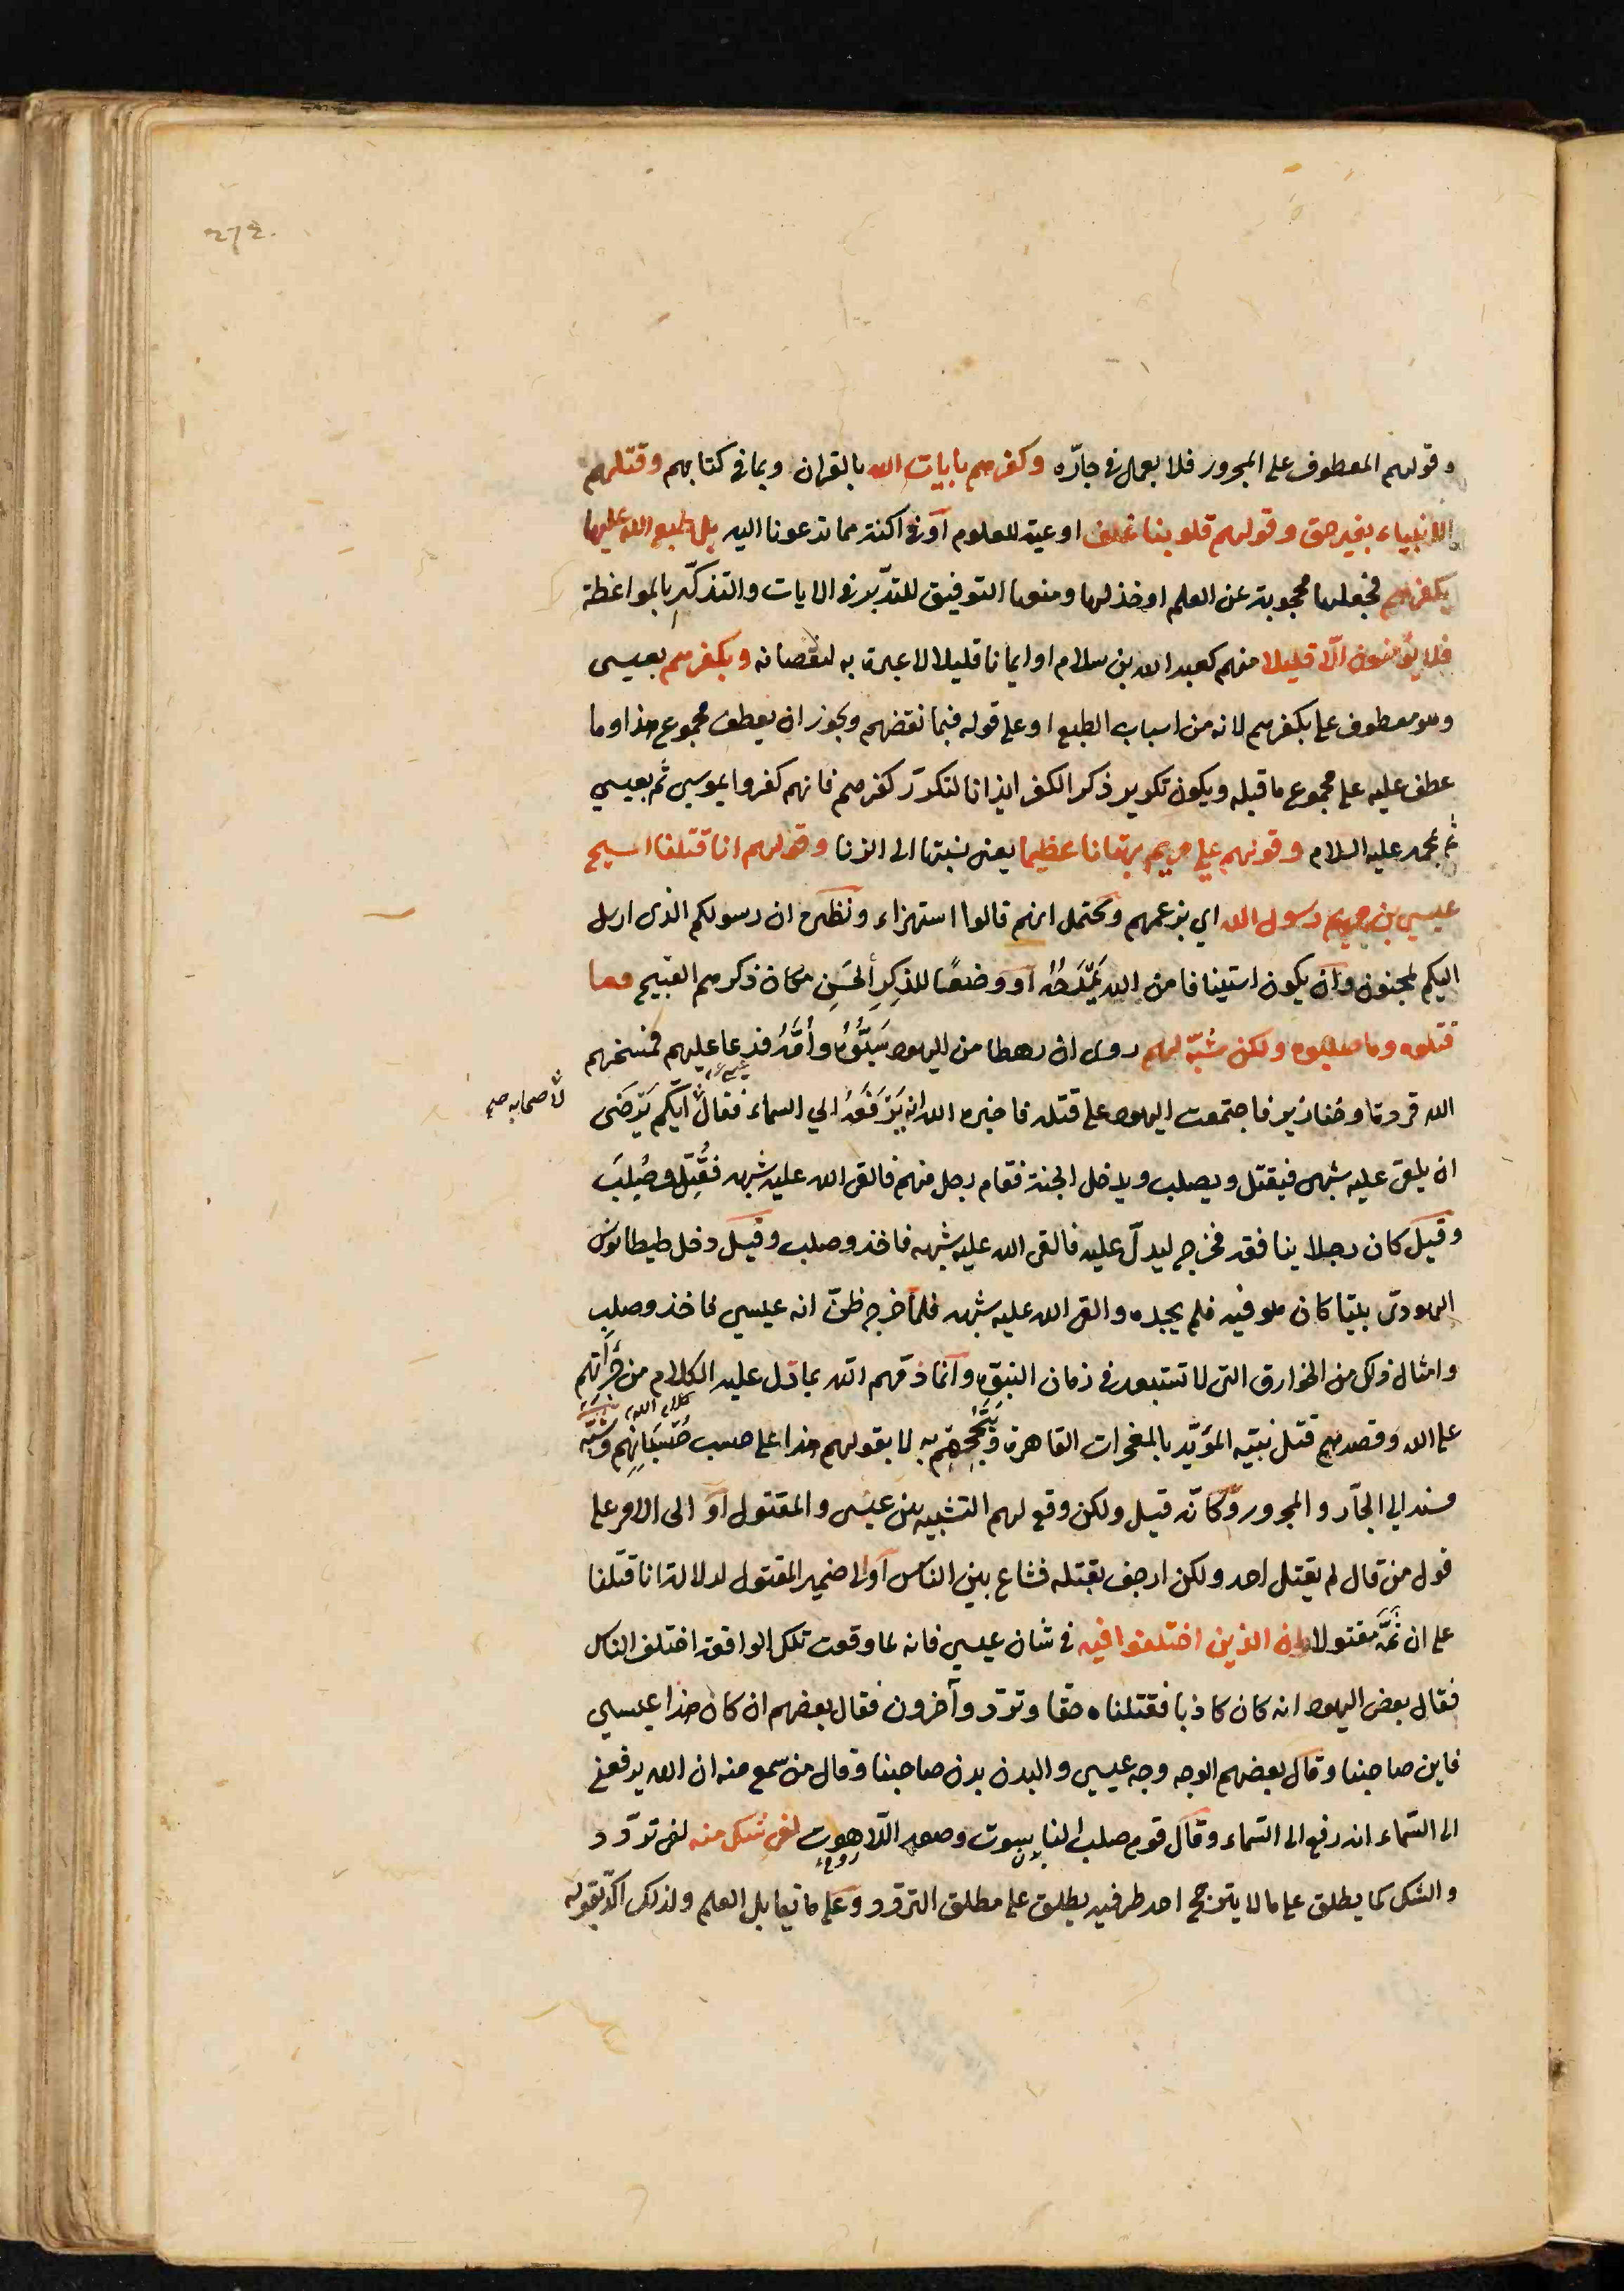 272.
وقولهم المعطوف على المجرور فلا يعمل في جارّه وكفرهم بايات الله بالقران وبما في كتابهم وقتلهم
الانبياء بغير حق وقولهم قلوبنا غلف اوعية للعلوم أو في اكنة مما تدعونا اليه بل طبع الله عليها
بكفرهم فجعلها محجوبة عن العلم او خذلها ومنعها التوفيق للتدّبر في الايات والتذكّر بالمواعظة
فلا يؤمنون الّا قليلا منهم كعبد الله بن سلام او ايمانا قليلا لا عبرة به لنقصانه وبكفرهم بعيسى
وهو معطوف على بكفرهم لانه من اسباب الطبع او على قوله فبما نقضهم ويجوز ان يعطف مجموع هذا وما
عطف عليه على مجموع ما قبله ويكون تكرير ذكر الكفر ايذانا لتكرّر كفرهم فانهم كفروا بموسى ثم بعيسى
ثم بمحمد عليه السلام وقولهم على مريم بهتانا عظيما يعنى نسبتها الى الزنا وقولهم انا قتلنا المسيح
عيسى بن مريم رسول الله اي بزعمهم ويحتمل انهم قالوا استهزاء ونظيره ان رسولكم الذى ارسل
اليكم لمجنون وأن يكون استينافا من الله بمَدحِه أو وضعًا للذكرِ الحَسَنِ مكان ذكرهم القبيح وما
قتلوه وما صلبوه ولكن شبّه لهم روى ان رهطا من اليهود سَبُّوهُ وأُمَّهُ فدعا عليهم فمسخهم
الله قردة وخنازير فاجتمعت اليهود على قتله فاخبره الله انه يَرْفَعُهُ الى السماء فقال أيّكم يَرْضَى
لاصحابه صح
ان يلقى عليه شبهى فيقتل ويصلب ويدخل الجنة فقام رجل منهم فالقى الله عليه شبهه فقُتِلَ وصُلِبَ
وقيل كان رجلا ينافقه فخرج ليدلّ عليه فالقى الله عليه شبهه فاخذ وصلب وقيل دخل طيطانوس
اليهودى بيتا كان هو فيه فلم يجده والقى الله عليه شبهه فلما خرج ظنّ انه عيسى فاخذ وصلب
وامثال ذلك من الخوارق التى لا تستبعد في زمان النبوّة وأنما ذمّهم الله بما دَل عليه الكلام من جُرْأتهم
على الله وقصدهم قتل نبيّه المؤيّد بالمعجزات القاهرة وتبجُّحِهِم به لا بقولهم هذا على حسب حُسْبَانِهِم وشُبّه
مسند الى الجآر والمجرور وكانّه قيل ولكن وقع لهم التشبيه بين عيسى والمقتول أو الى الامر على
قول من قال لم يقتل احد ولكن ارجف بقتله فشاع بين الناس أو الى ضمير المقتول لدلالة انا قتلنا
على ان ثَمَّ مقتولا وان الذين اختلفوا فيه في شان عيسى فانه لما وقعت تلك الواقعة اختلف الناس
فقال بعض اليهود انه كان كاذبا فقتلناه حقا وتردّد وآخرون فقال بعضهم ان كان هذا عيسى
فاين صاحبنا وقال بعضهم الوجه وجه عيسى والبدن بدن صاحبنا وقال من سمع منه ان الله يرفعنى
الى السّماء انه رفع الى السّماء وقال قوم صلب الناسوت وصعد اللّاهوت لفى شك منه لفى تردّد
بدن روح
والشك كما يطلق على ما لا يترجّح احد طرفيه يطلق على مطلق التردد وعلى ما يقابل العلم ولذلك اكّد بقوله